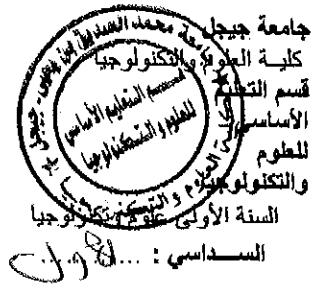 جامعة جيجل
كلية العلوم والتكنولوجيا
قسم التعليم
الأساسي
للعلوم
والتكنولوجيا
السنة الأولى علوم وتكنولوجيا
السداسي : ...الأول...
جامعة محمد الصديق بن يحيى - جيجل
كلية العلوم والتكنولوجيا
قسم التعليم الأساسي
للعلوم والتكنولوجيا